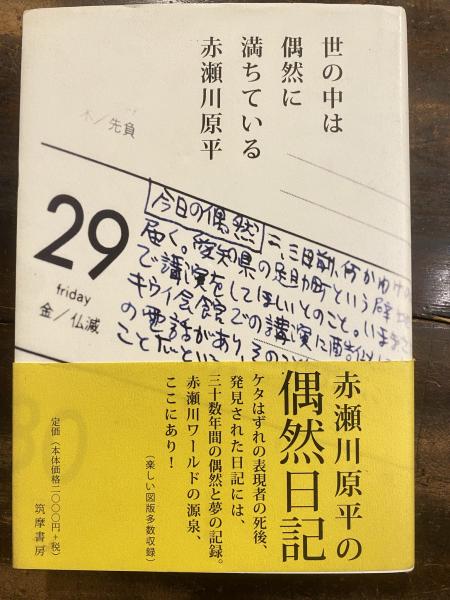 世の中は
偶然に
満ちている
赤瀬川原平
木／先負
29
friday
金／仏滅
今日の偶然
二、三日前、何かわけの
届く。愛知県の足助町という辟地
で講演をしてほしいとのこと。
キウイ会館での講演に
の電話があり、その
ことだという
赤瀬川原平の
偶然日記
ケタはずれの表現者の死後、
発見された日記には、
三十数年間の偶然と夢の記録。
赤瀬川ワールドの源泉、
ここにあり！
（楽しい図版多数収録）
定価（本体価格二〇〇〇円＋税）
筑摩書房